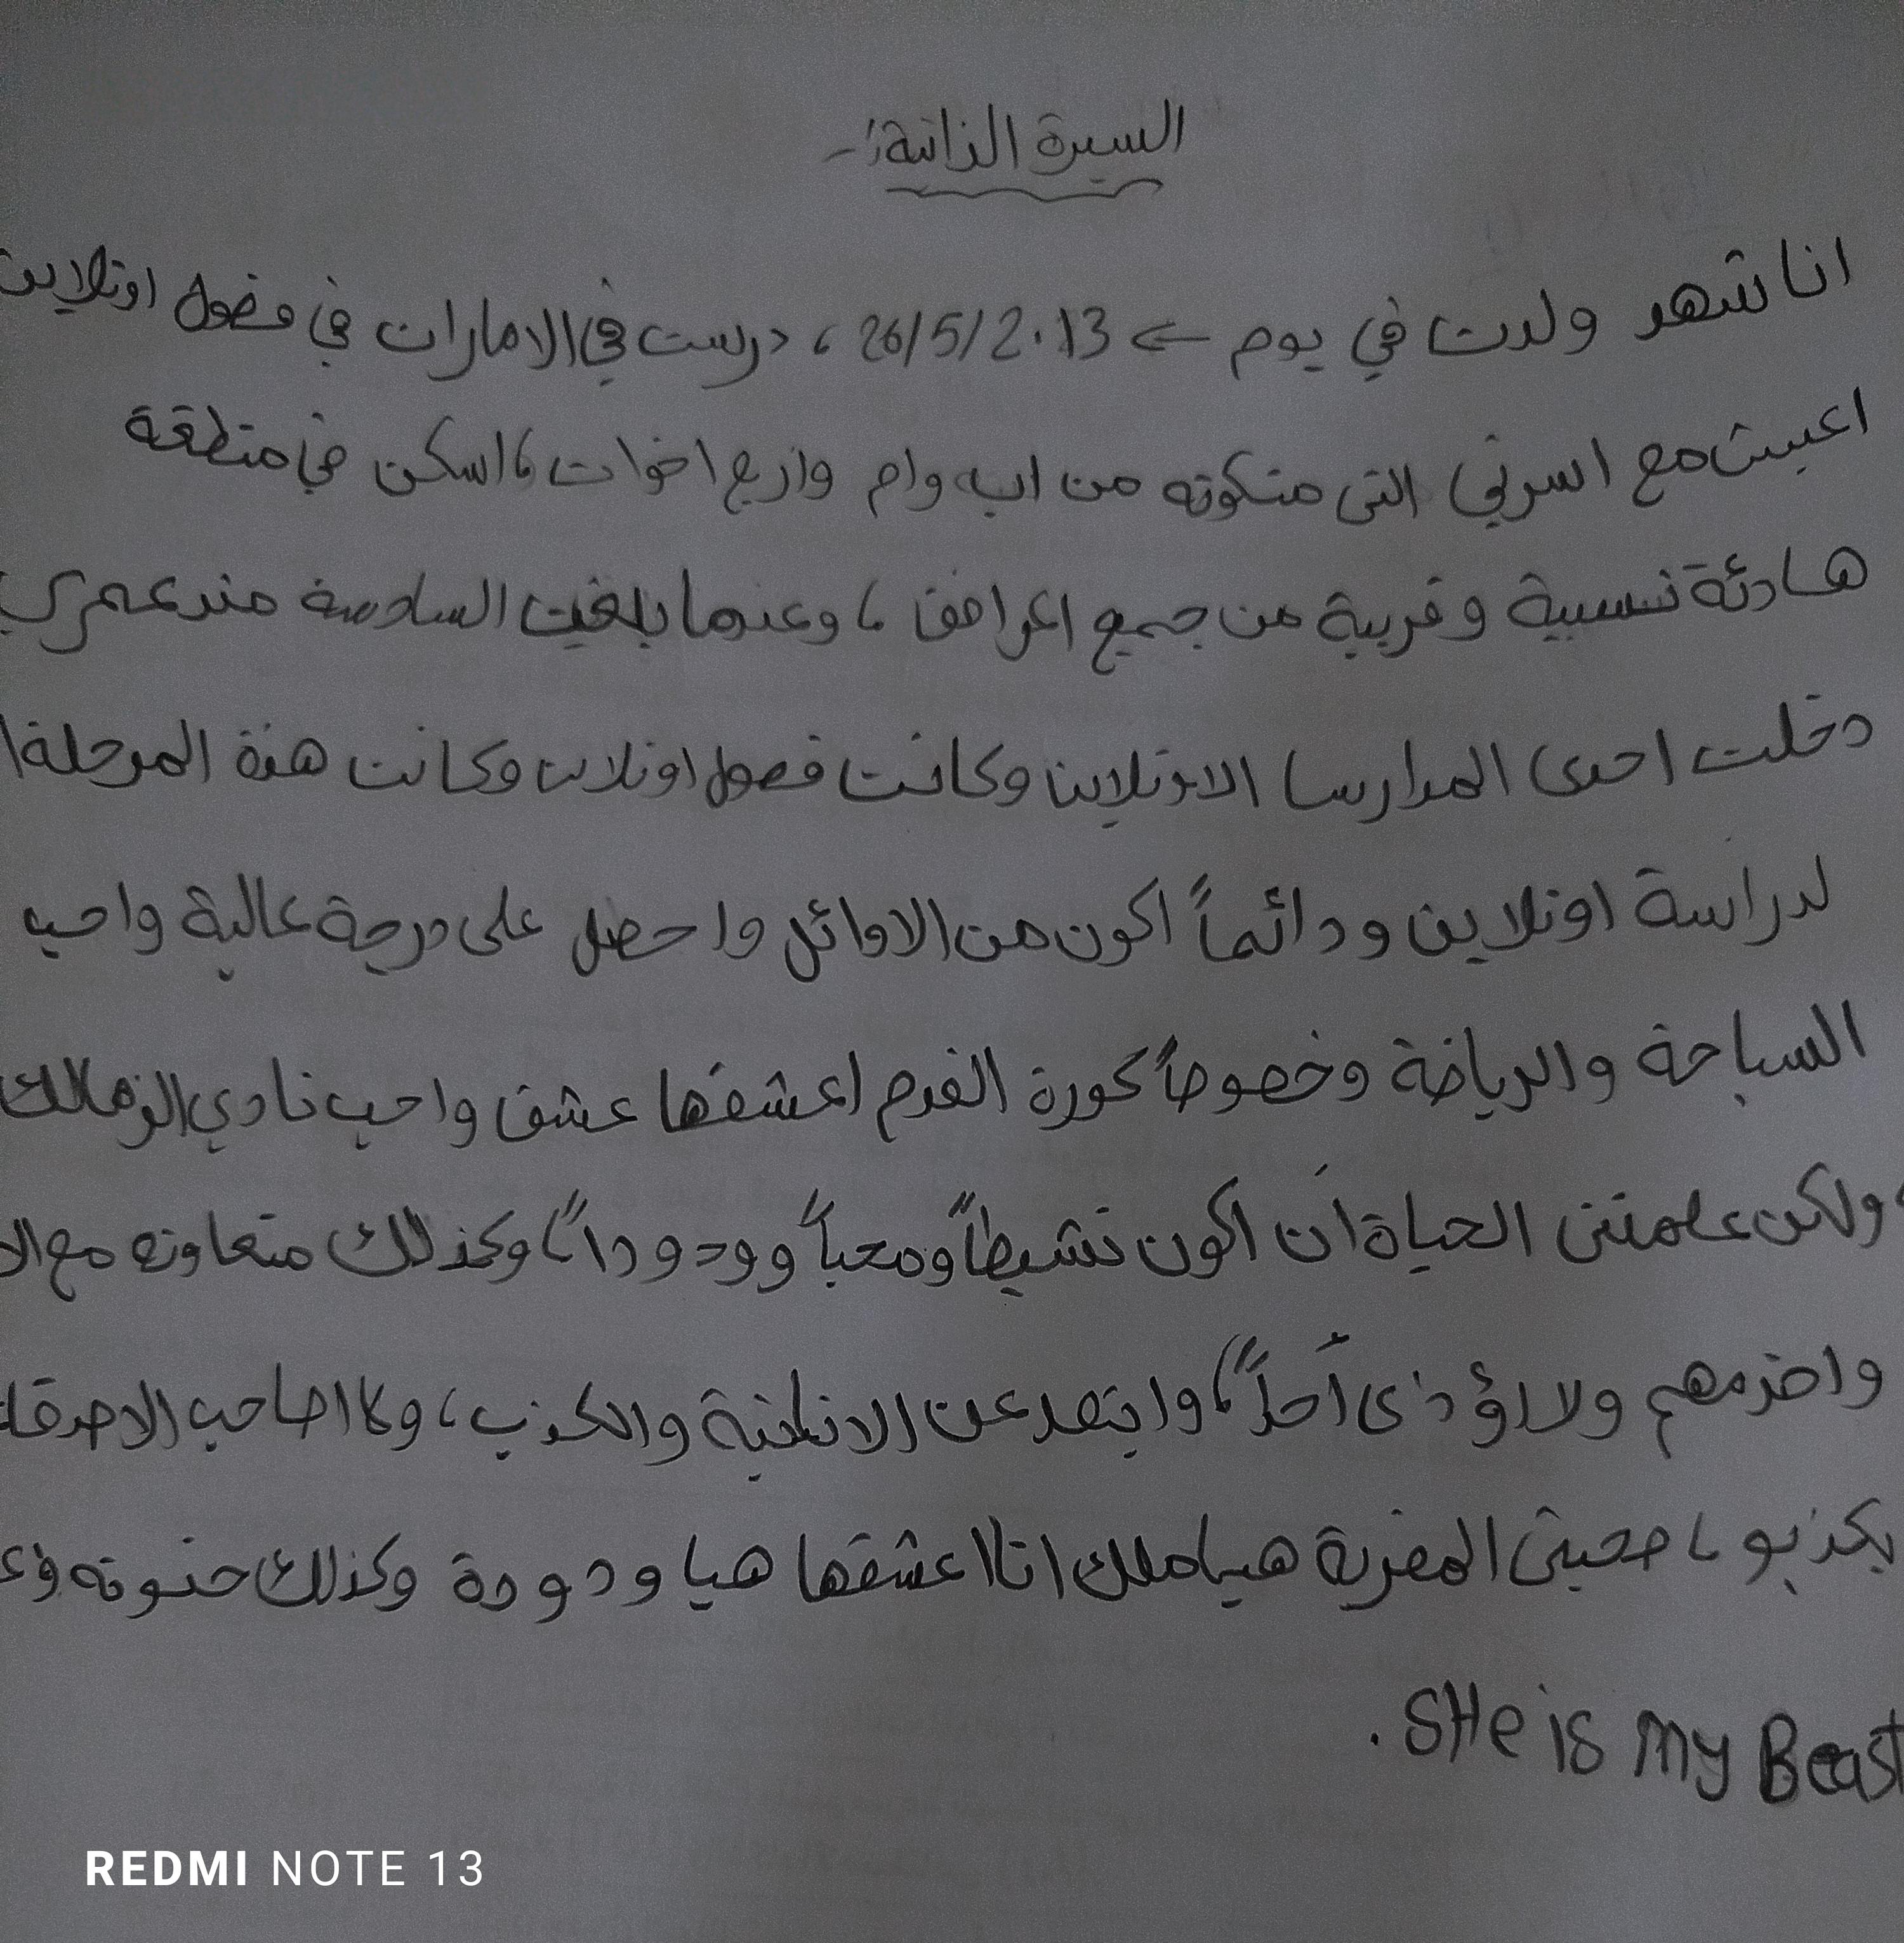 السيرة الذاتية:-
انا شهد ولدت في يوم ← 26/5/2013 ، درست في الامارات في فصول اونلاين
اعيش مع اسرتي التى متكونه من اب وام واربع اخوات ، اسكن في منطقة
هادئة نسبية وقريبة من جميع المرافق ، وعندما بلغت السادسة منذ عمري
دخلت احدى المدارسا الاونلاين وكانت فصول اونلاين وكانت هذة المرحلة
لدراسة اونلاين ودائماً اكون من الاوائل واحصل على درجة عالية واحب
السباحة والرياضة وخصوصاً كورة القدم اعشقها عشق واحب نادي الزمالك
ولكن علمتنى الحياة ان اكون نشيطاً ومحباً وودوداً ، وكذلك متعاونه مع
واخدمهم ولا اؤذى أحداً ، وابتعد عن الانانية والكذب ، ولا اصاحب الاصدقاء
يكذبو ، صحبتى المقربة هيا ملك انا اعشقها هيا ودودة وكذلك حنونه
SHe is My Beast .
REDMI NOTE 13